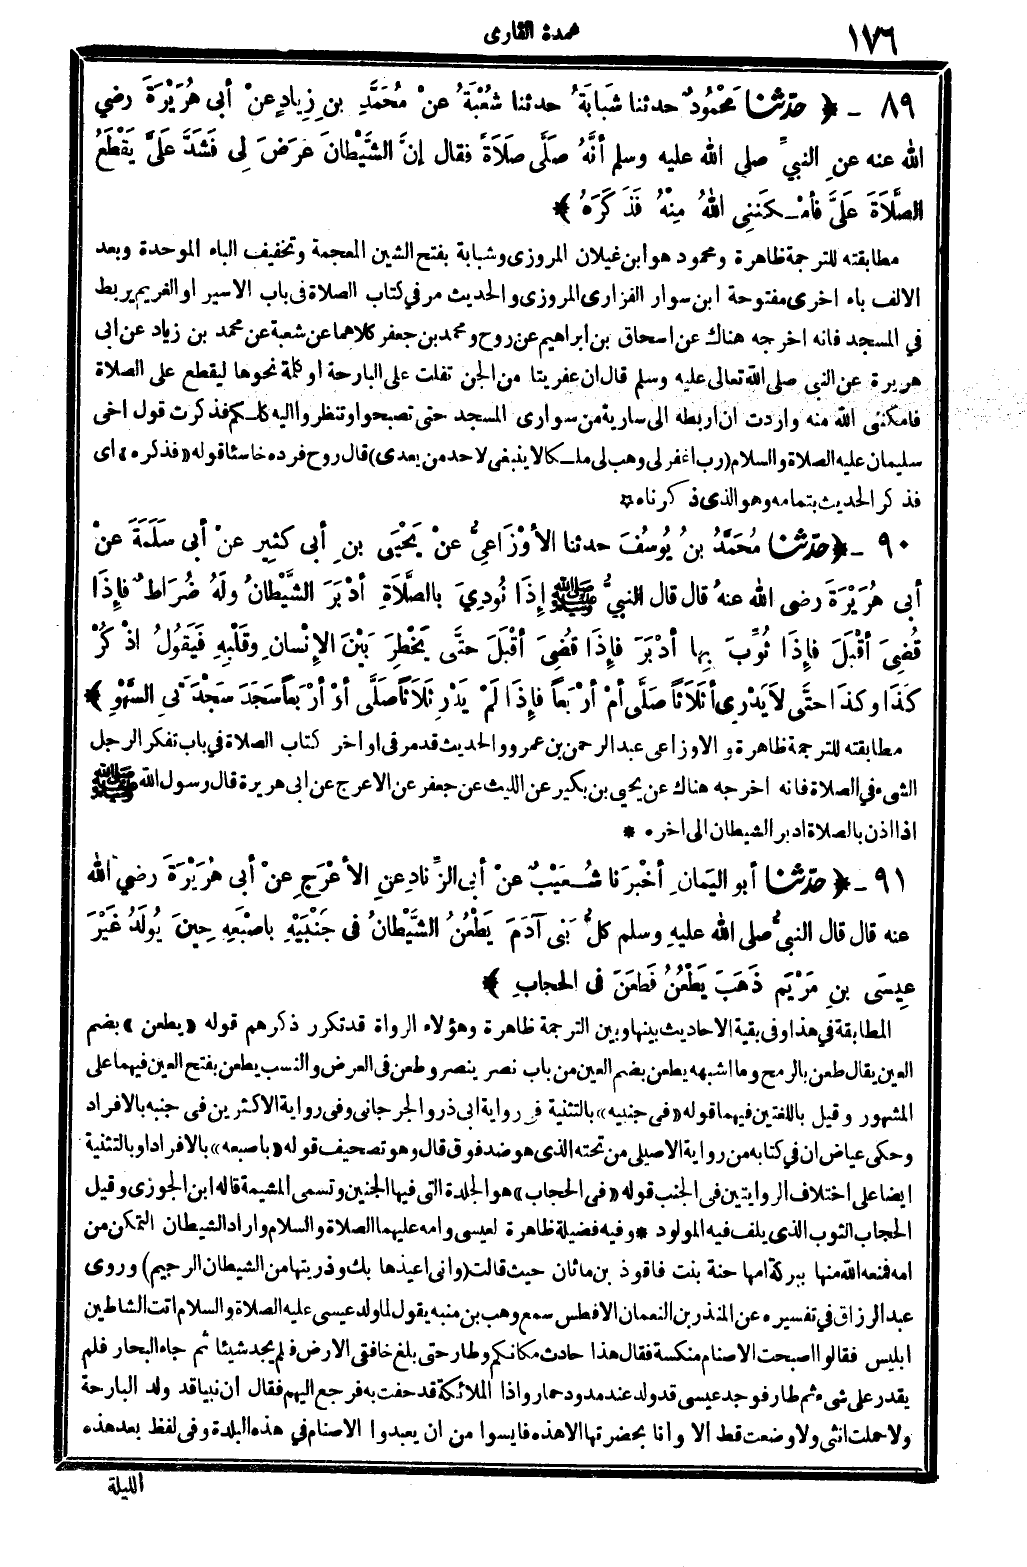 ١٧٦
عمدة القارى
٨٩ ـ ﴿ حدّثنا مَحْمُودٌ حدثنا شَبابَةُ حدثنا شُعْبَةُ عنْ مُحَمَّدِ بنِ زِيادٍ عنْ أبى هُرَيْرَةَ رضي
الله عنه عنِ النبيِّ صلى الله عليه وسلم أنَّهُ صَلَّى صَلَاةً فقال إنَّ الشَّيْطانَ عَرَضَ لِى فَشَدَّ عَلَىَّ يَقْطَعُ
الصَّلَاةَ عَلَىَّ فأمْـكَننِى اللهُ مِنْهُ فَذَكَرَهُ ﴾
مطابقته للترجمة ظاهرة ومحمود هو ابن غيلان المروزى وشبابة بفتح الشين المعجمة وتخفيف الباء الموحدة وبعد
الالف باء اخرى مفتوحة ابن سوار الفزارى المروزى والحديث مر في كتاب الصلاة فى باب الاسير او الغريم يربط
في المسجد فانه اخرجه هناك عن اسحاق بن ابراهيم عن روح ومحمد بن جعفر كلاهما عن شعبة عن محمد بن زياد عن ابى
هريرة عن النبى صلى الله تعالى عليه وسلم قال ان عفريتا من الجن تفلت على البارحة او كلمة نحوها ليقطع على الصلاة
فامكننى الله منه واردت ان اربطه الى سارية من سوارى المسجد حتى تصبحوا وتنظروا اليه كلـكم فذكرت قول اخى
سليمان عليه الصلاة والسلام (رب اغفر لى وهب لى ملـكا لا ينبغى لاحد من بعدى) قال روح فرده خاسئا قوله «فذكره» اى
فذكر الحديث بتمامه وهو الذى ذكرناه ¤
٩٠ ـ ﴿ حدّثنا مُحَمَّدُ بنُ يُوسُفَ حدثنا الأوْزَاعِىُّ عنْ يَحْيَى بنِ أبى كثِيرٍ عنْ أبى سَلَمَةَ عنْ
أبى هُرَيْرَةَ رضى الله عنهُ قال قال النبىُّ ﷺ إِذَا نُودِىَ بالصَّلَاةِ أدْبَرَ الشَّيْطانُ ولَهُ ضُرَاطٌ فإذَا
قُضِىَ أقْبَلَ فإذَا ثُوِّبَ بِها أدْبَرَ فإذَا قُضِىَ أقْبَلَ حتَّى يَخْطِرَ بَيْنَ الإنْسانِ وقَلْبِهِ فَيَقُولُ اذْكُرْ
كَذَا وكذا حتَّى لَا يَدْرِى أثَلَاثًا صَلَّى أمْ أرْبَعاً فإذَا لَمْ يَدْرِ ثَلَاثًا صَلَّى أوْ أرْبَعاً سَجَدَ سَجْدَتَىِ السَّهْوِ ﴾
مطابقته للترجمة ظاهرة والاوزاعى عبد الرحمن بن عمرو والحديث قد مر فى اواخر كتاب الصلاة في باب تفكر الرجل
الشىء فى الصلاة فانه اخرجه هناك عن يحيى بن بكير عن الليث عن جعفر عن الاعرج عن ابى هريرة قال رسول الله ﷺ
اذا اذن بالصلاة ادبر الشيطان الى اخره *
٩١ ـ ﴿ حدّثنا أبو اليَمانِ أخْبَرَنا شُعَيْبٌ عنْ أبى الزِّنادِ عنِ الأعْرَجِ عنْ أبى هُرَيْرَةَ رضي الله
عنه قال قال النبىُّ صلى الله عليهِ وسلم كلُّ بَنى آدَمَ يَطْعُنُ الشَّيْطانُ فى جَنْبَيْهِ باِصْبَعِهِ حِينَ يُولَدُ غَيْرَ
عِيسَى بنِ مَرْيَمَ ذَهَبَ يَطْعُنُ فَطَعَنَ فى الحِجابِ ﴾
المطابقة في هذا وفى بقية الاحاديث بينها وبين الترجمة ظاهرة وهؤلاء الرواة قد تكرر ذكرهم قوله «يطعن» بضم
العين يقال طعن بالرمح وما اشبهه يطعن بضم العين من باب نصر ينصر وطعن فى العرض والنسب يطعن بفتح العين فيهما على
المشهور وقيل باللغتين فيهما قوله «فى جنبيه» بالتثنية فى رواية ابى ذر والجرجانى وفى رواية الاكثرين فى جنبه بالافراد
وحكى عياض ان في كتابه من رواية الاصيلى من تحته الذى هو ضد فوق قال وهو تصحيف قوله «باصبعه» بالافراد او بالتثنية
ايضا على اختلاف الروايتين فى الجنب قوله «فى الحجاب» هو الجلدة التى فيها الجنين وتسمى المشيمة قاله ابن الجوزى وقيل
الحجاب الثوب الذى يلف فيه المولود * وفيه فضيلة ظاهرة لعيسى وامه عليهما الصلاة والسلام واراد الشيطان التمكن من
امه فمنعه الله منها ببركة امها حنة بنت فاقوذ بن ماثان حيث قالت (وانى اعيذها بك وذريتها من الشيطان الرجيم) وروى
عبد الرزاق في تفسيره عن المنذر بن النعمان الافطس سمع وهب بن منبه يقول لما ولد عيسى عليه الصلاة والسلام اتت الشاطين
ابليس فقالوا اصبحت الاصنام منكسة فقال هذا حادث مكانكم وطار حتى بلغ خافقى الارض فلم يجد شيئا ثم جاء البحار فلم
يقدر على شىء ثم طار فوجد عيسى قد ولد عند مدود حمار واذا الملائكة قد حفت به فرجع اليهم فقال ان نبيا قد ولد البارحة
ولا حملت انثى ولا وضعت قط الا وانا بحضرتها الا هذه فايسوا من ان يعبدوا الاصنام في هذه البلدة وفى لفظ بعد هذه
الليلة